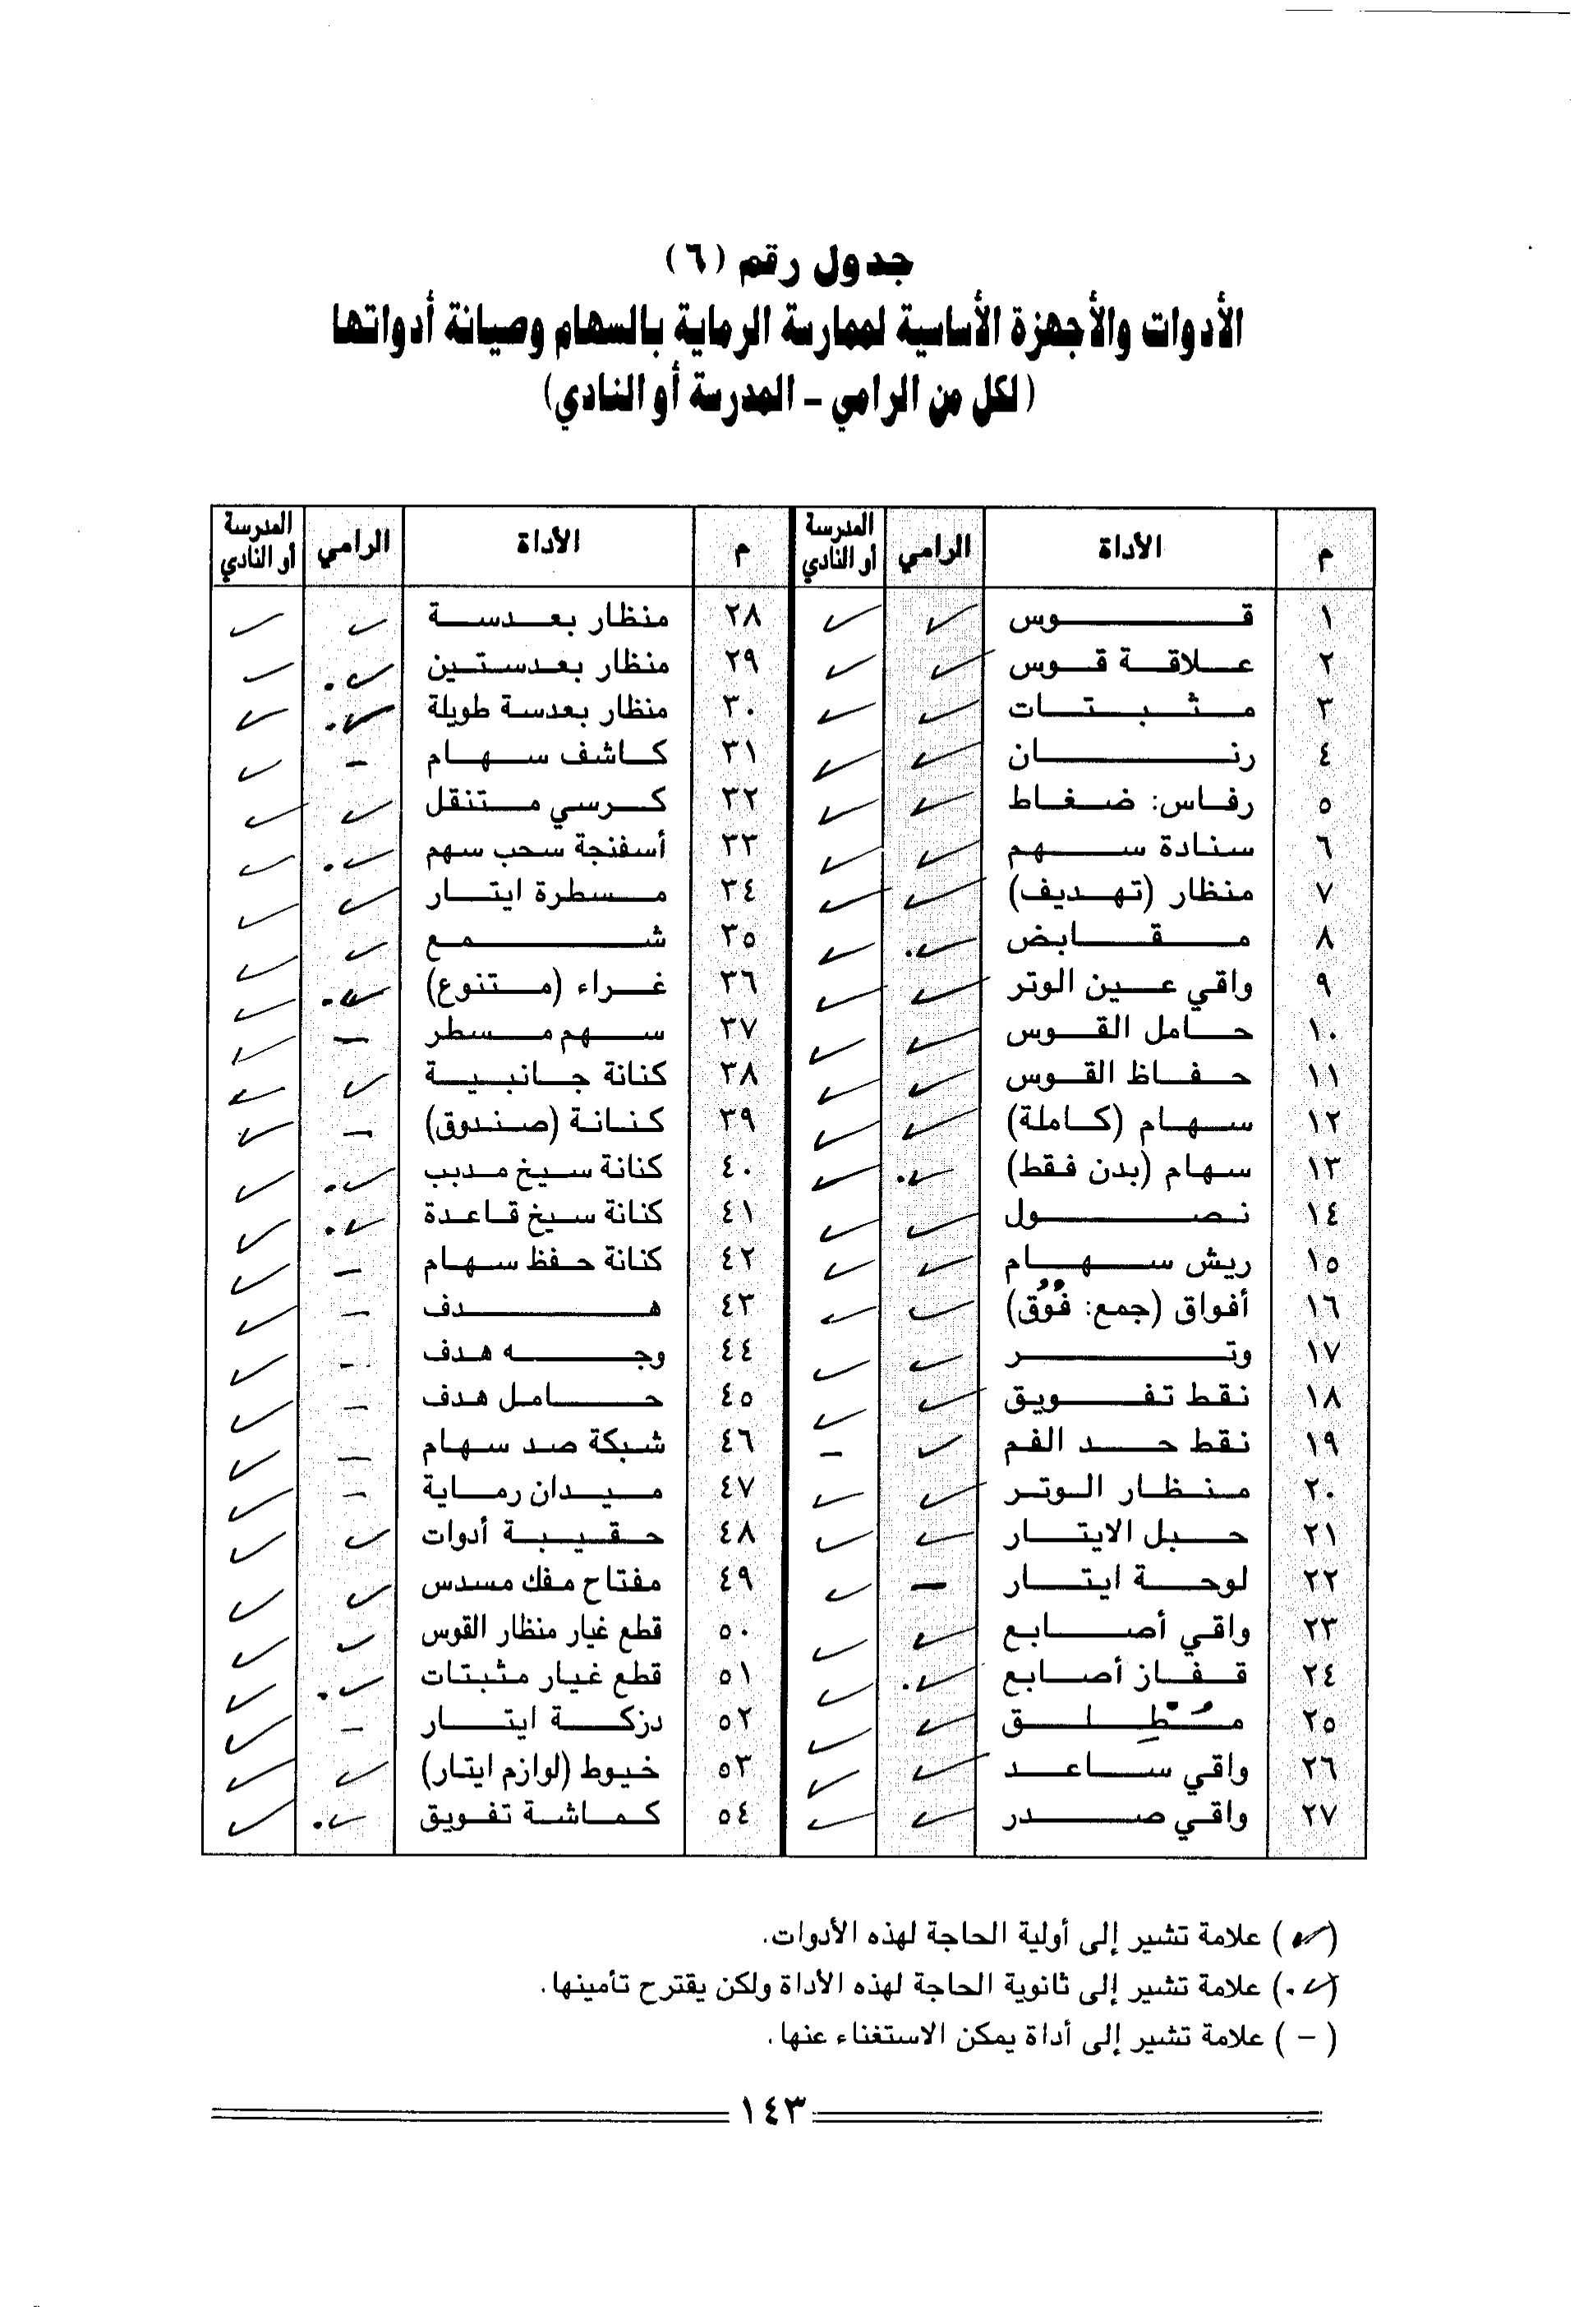 جدول رقم (٦)
الأدوات والأجهزة الأساسية لممارسة الرماية بالسهام وصيانة أدواتها
(لكل من الرامي – المدرسة أو النادي)
م الأداة الرامي المدرسة أو النادي م الأداة الرامي المدرسة أو النادي
١ قوس ✓ ✓ ٢٨ منظار بعدسة ✓ ✓
٢ علاقة قوس ✓ ✓ ٢٩ منظار بعدستين ✓. ✓
٣ مثبتات ✓ ✓ ٣٠ منظار بعدسة طويلة ✓. ✓
٤ رنان ✓ ✓ ٣١ كاشف سهام – ✓
٥ رفاس: ضغاط ✓ ✓ ٣٢ كرسي متنقل ✓ ✓
٦ سنادة سهم ✓ ✓ ٣٣ أسفنجة سحب سهم ✓. ✓
٧ منظار (تهديف) ✓ ✓ ٣٤ مسطرة ايتار ✓ ✓
٨ مقابض ✓. ✓ ٣٥ شمع ✓ ✓
٩ واقي عين الوتر ✓ ✓ ٣٦ غراء (متنوع) ✓. ✓
١٠ حامل القوس ✓ ✓ ٣٧ سهم مسطر – ✓
١١ حفاظ القوس ✓ ✓ ٣٨ كنانة جانبية ✓ ✓
١٢ سهام (كاملة) ✓ ✓ ٣٩ كنانة (صندوق) – ✓
١٣ سهام (بدن فقط) ✓. ✓ ٤٠ كنانة سيخ مدبب ✓. ✓
١٤ نصول ✓ ✓ ٤١ كنانة سيخ قاعدة ✓. ✓
١٥ ريش سهام ✓ ✓ ٤٢ كنانة حفظ سهام – ✓
١٦ أفواق (جمع: فُوُق) ✓ ✓ ٤٣ هدف – ✓
١٧ وتر ✓ ✓ ٤٤ وجه هدف – ✓
١٨ نقط تفويق ✓ ✓ ٤٥ حامل هدف – ✓
١٩ نقط حد الفم ✓ – ٤٦ شبكة صد سهام – ✓
٢٠ منظار الوتر ✓ ✓ ٤٧ ميدان رماية – ✓
٢١ حبل الايتار ✓ ✓ ٤٨ حقيبة أدوات ✓ ✓
٢٢ لوحة ايتار – ✓ ٤٩ مفتاح مفك مسدس ✓ ✓
٢٣ واقي أصابع ✓ ✓ ٥٠ قطع غيار منظار القوس ✓ ✓
٢٤ قفاز أصابع ✓. ✓ ٥١ قطع غيار مثبتات ✓. ✓
٢٥ مُطْلِق ✓ ✓ ٥٢ دزكة ايتار – ✓
٢٦ واقي ساعد ✓ ✓ ٥٣ خيوط (لوازم ايتار) ✓ ✓
٢٧ واقي صدر ✓ ✓ ٥٤ كماشة تفويق ✓. ✓
(✓) علامة تشير إلى أولية الحاجة لهذه الأدوات.
(✓.) علامة تشير إلى ثانوية الحاجة لهذه الأداة ولكن يقترح تأمينها.
( – ) علامة تشير إلى أداة يمكن الاستغناء عنها.
١٤٣